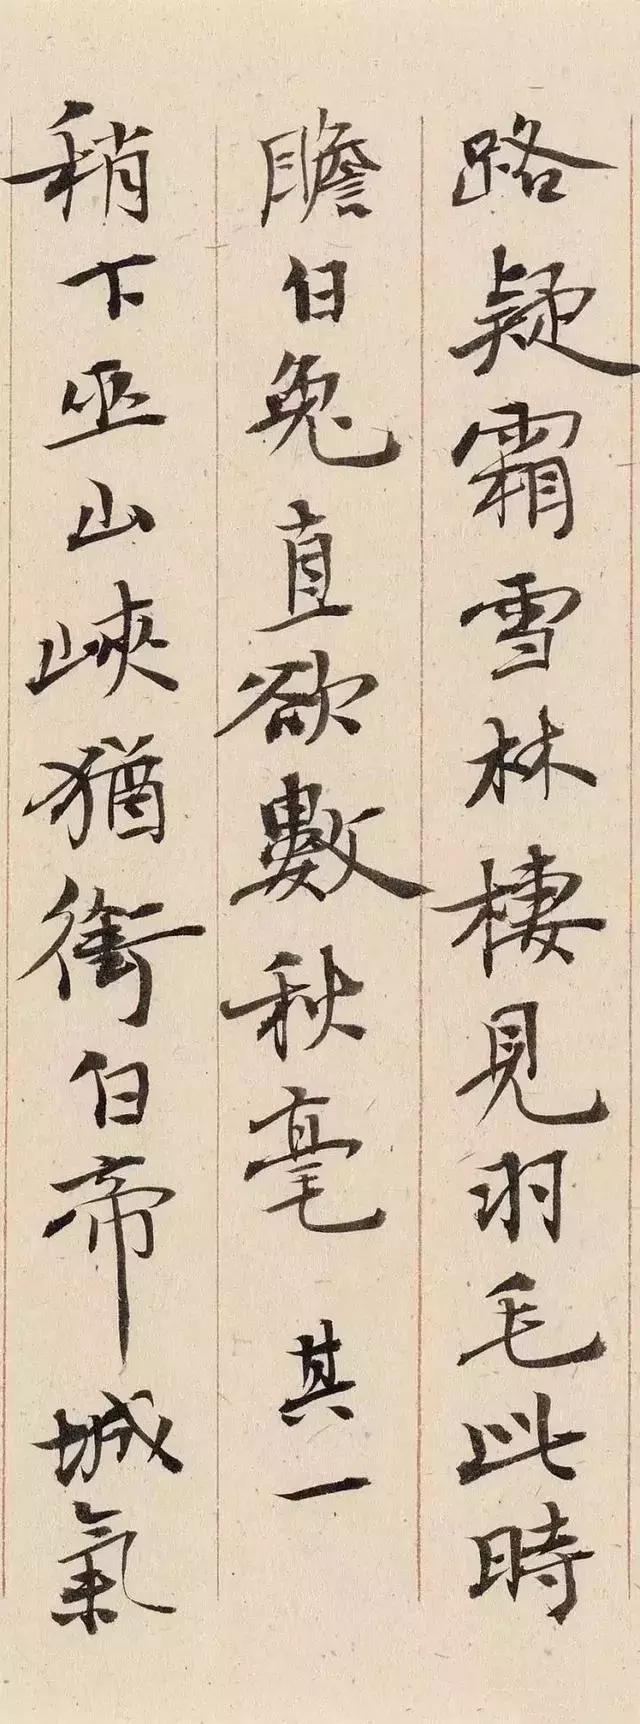 路疑霜雪林棲見羽毛此時
瞻白兔直欲數秋毫 其一
稍下巫山峽猶銜白帝城氣